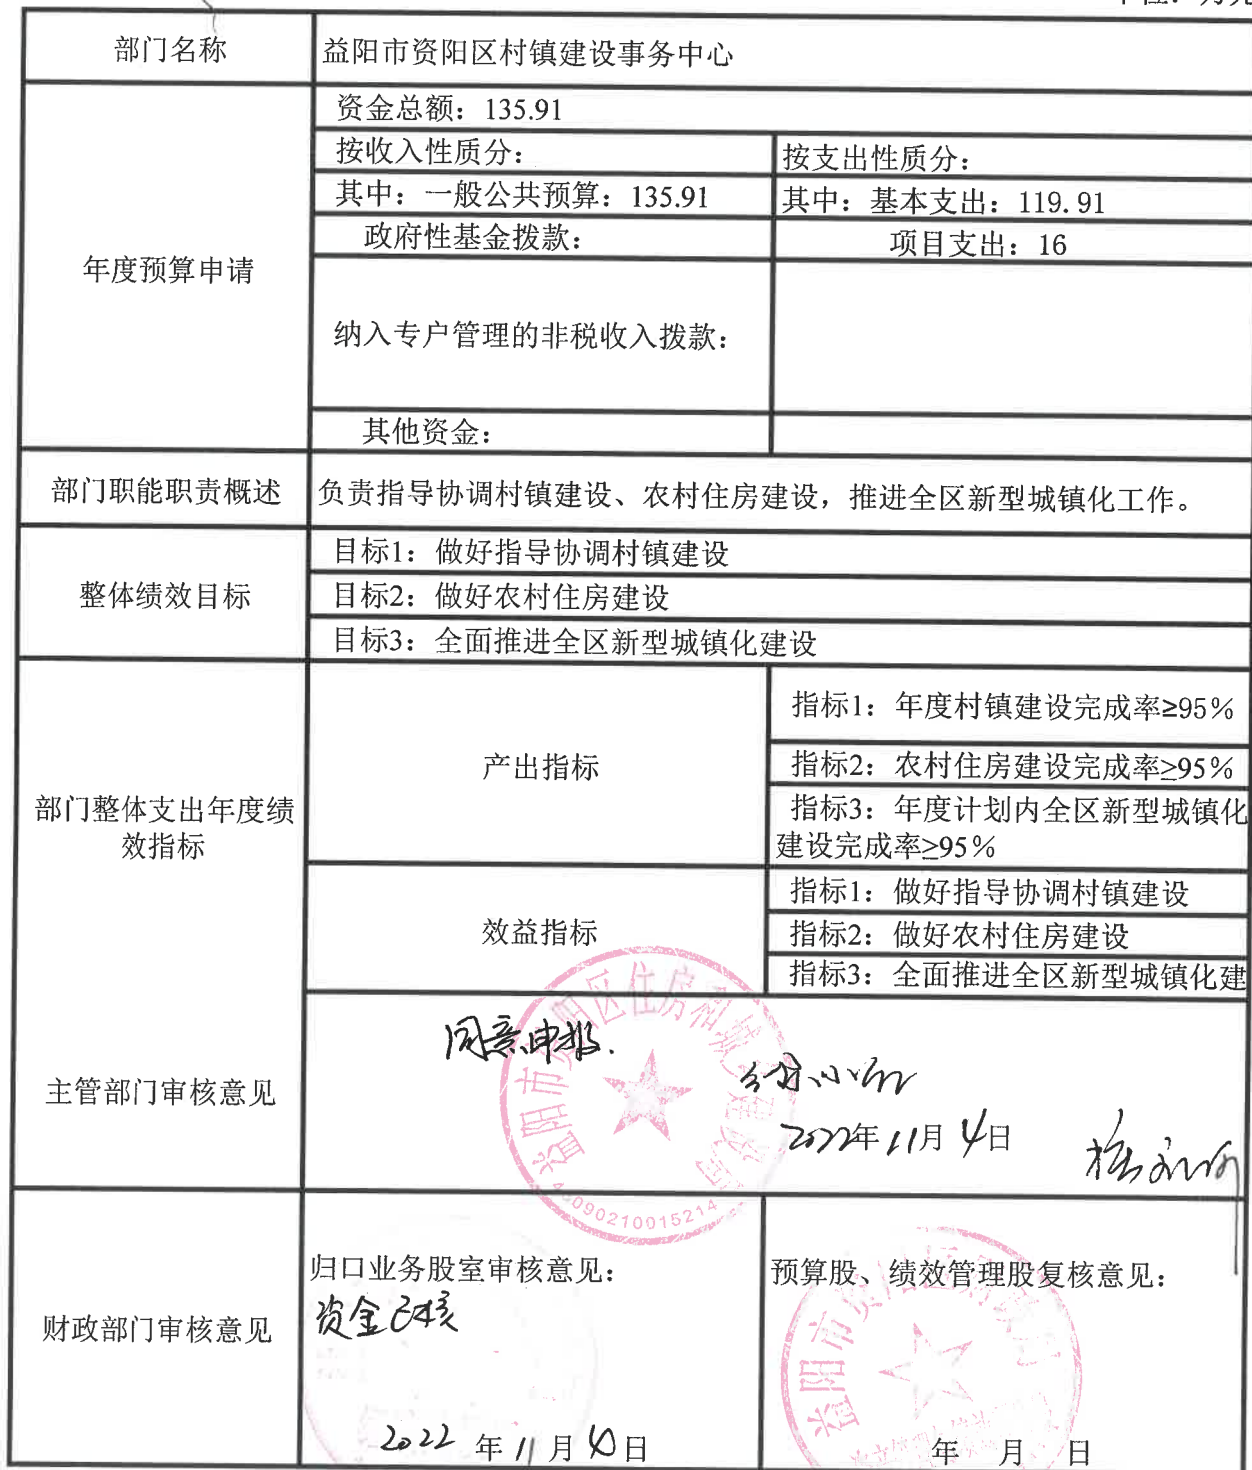 部门名称
益阳市资阳区村镇建设事务中心
年度预算申请
资金总额：135.91
按收入性质分：
按支出性质分：
其中：一般公共预算：135.91
其中：基本支出：119.91
政府性基金拨款：
项目支出：16
纳入专户管理的非税收入拨款：
其他资金：
部门职能职责概述
负责指导协调村镇建设、农村住房建设，推进全区新型城镇化工作。
整体绩效目标
目标1：做好指导协调村镇建设
目标2：做好农村住房建设
目标3：全面推进全区新型城镇化建设
部门整体支出年度绩
效指标
产出指标
指标1：年度村镇建设完成率≥95%
指标2：农村住房建设完成率≥95%
指标3：年度计划内全区新型城镇化
建设完成率≥95%
效益指标
指标1：做好指导协调村镇建设
指标2：做好农村住房建设
指标3：全面推进全区新型城镇化建
主管部门审核意见
同意申报.
益阳市资阳区住房和城乡建设局
2022年11月4日
财政部门审核意见
归口业务股室审核意见：
资金已核
2022年11月4日
预算股、绩效管理股复核意见：
益阳市资阳区财政局
年 月 日